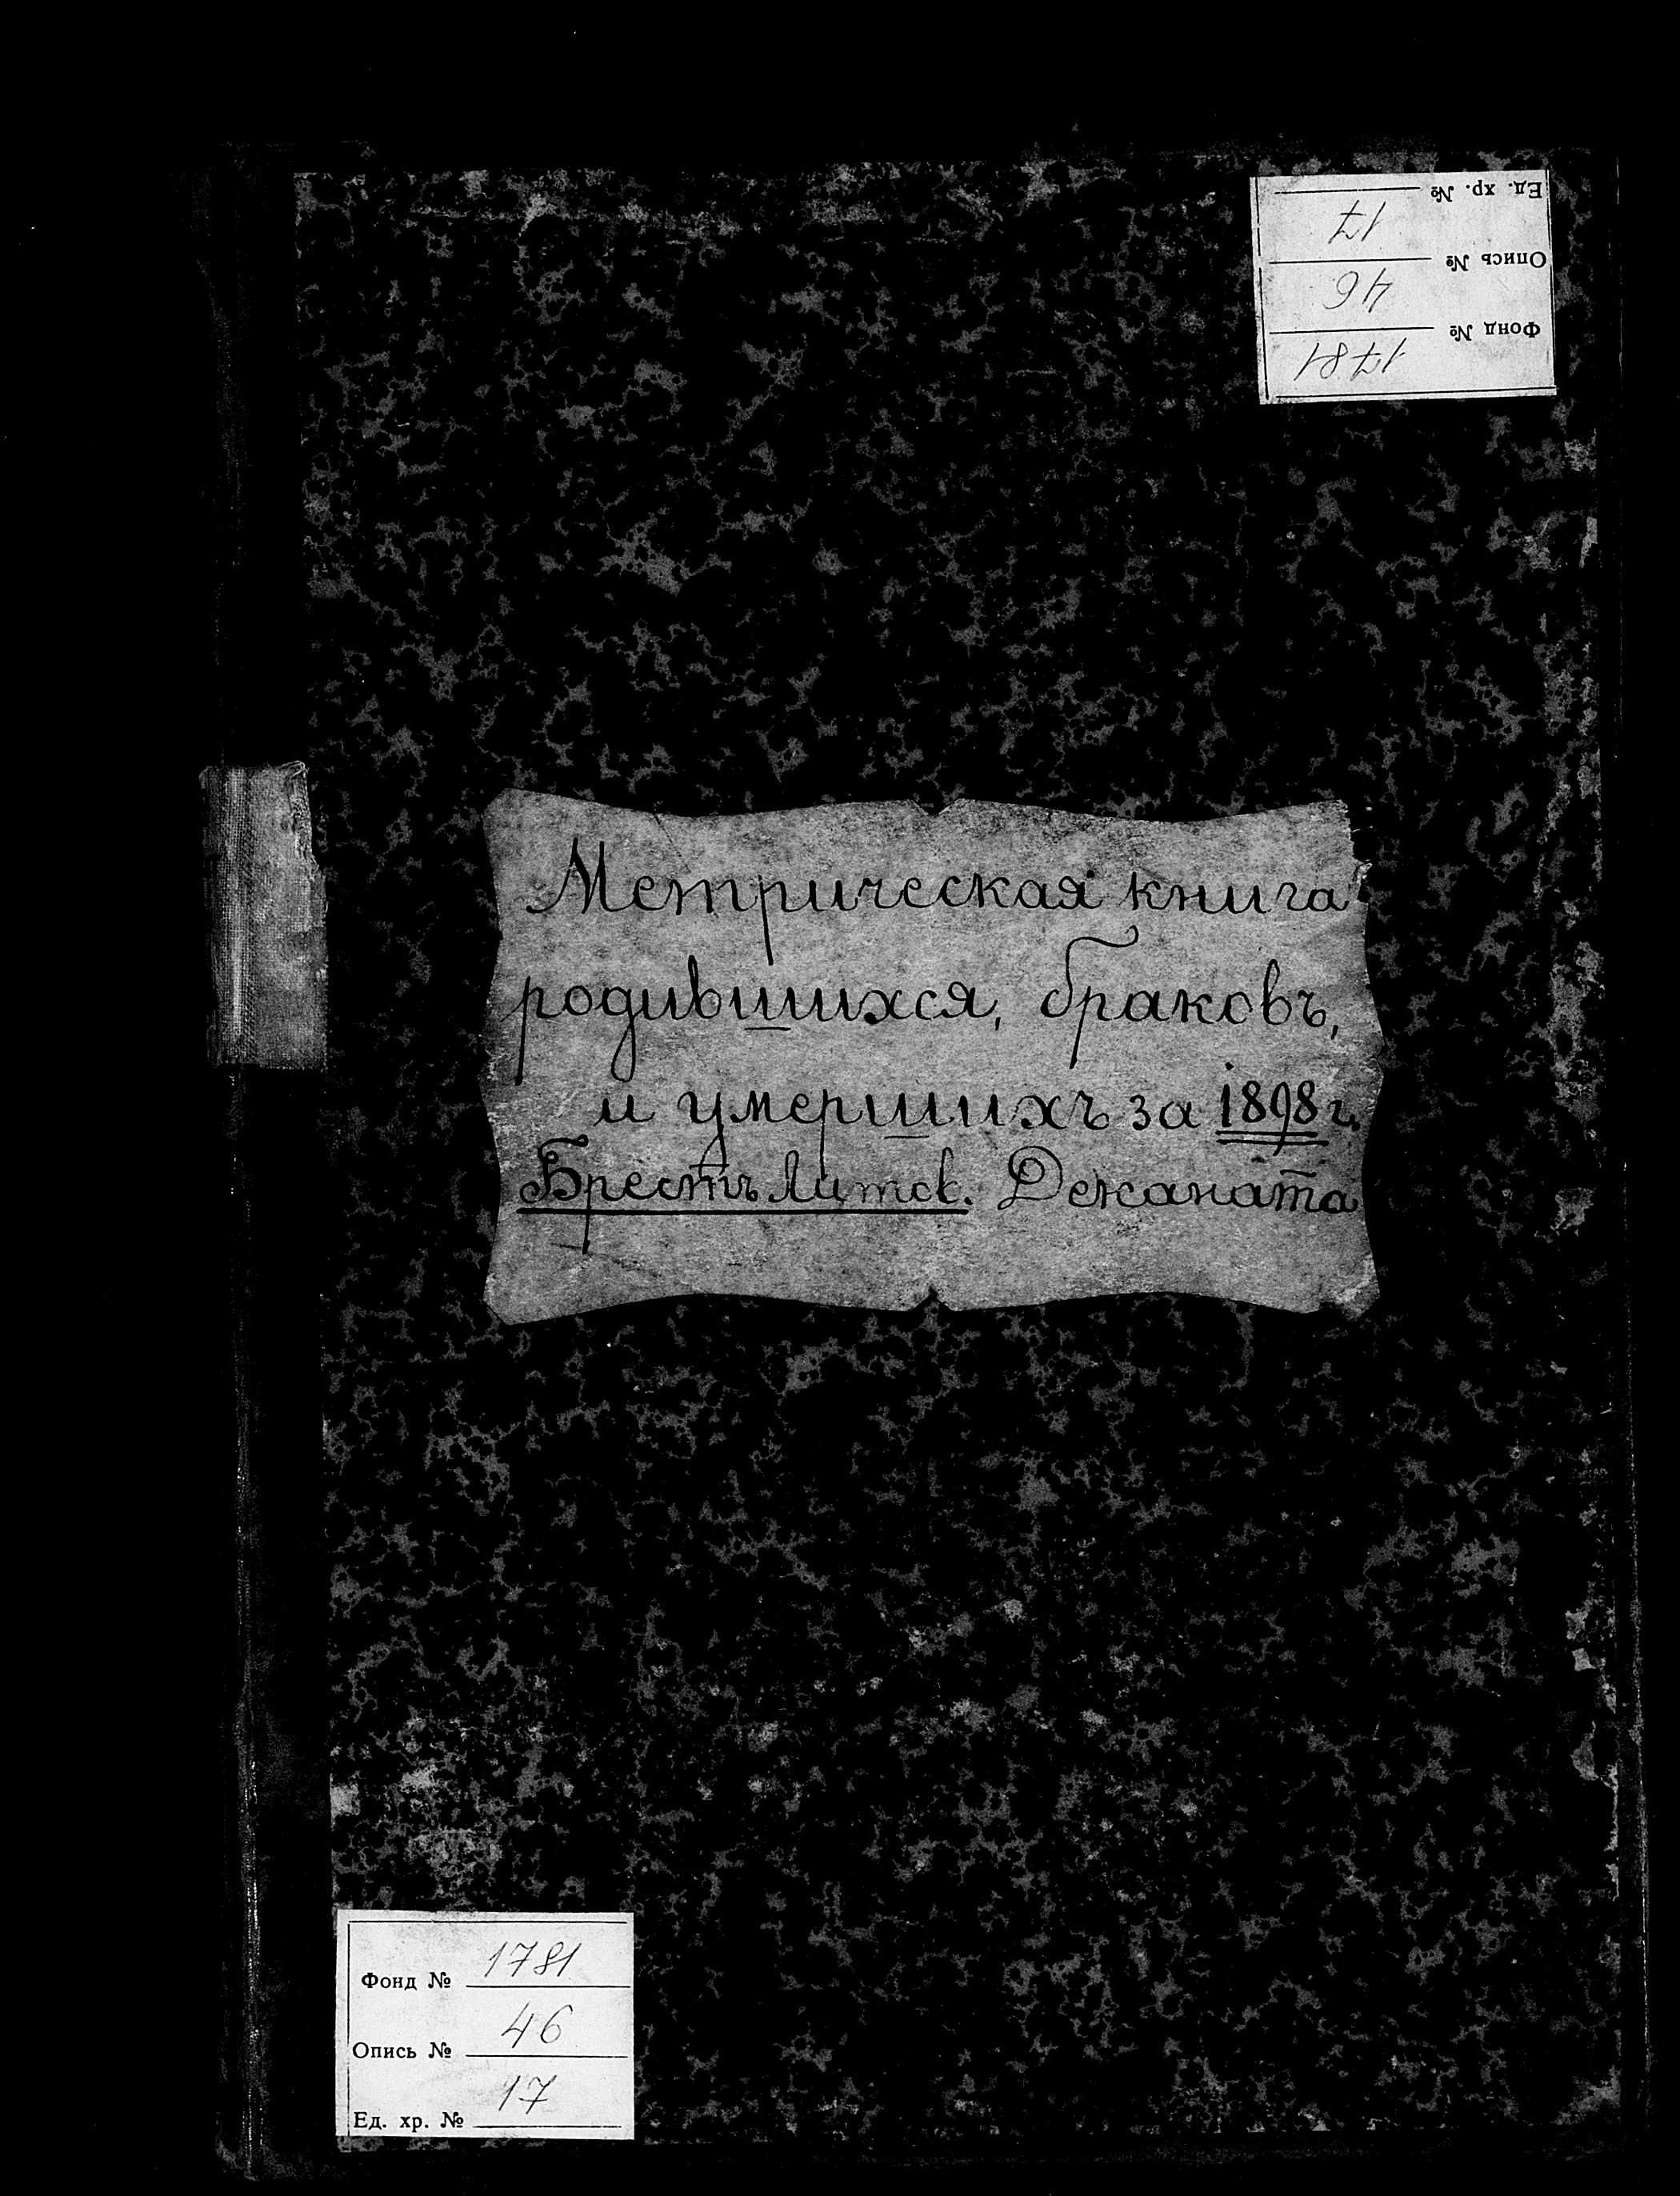 Ед. хр. № 17
Опись № 46
Фонд № 1781
Метрическая книга
родившихся, браковъ,
и умершихъ за 1898 г.
Брестъ Литск. Деканата
Фонд № 1781
Опись № 46
Ед. хр. № 17